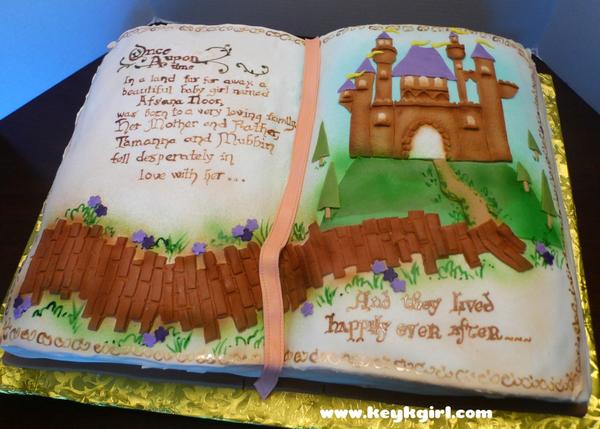 Once
Aupon
a time
In a land far far away, a
beautiful baby girl named
Afsana Noor,
was born to a very loving family.
Her Mother and Father,
Tamanna and Mubbin
fell desperately in
love with her...
And they lived
happily ever after....
www.keykgirl.com